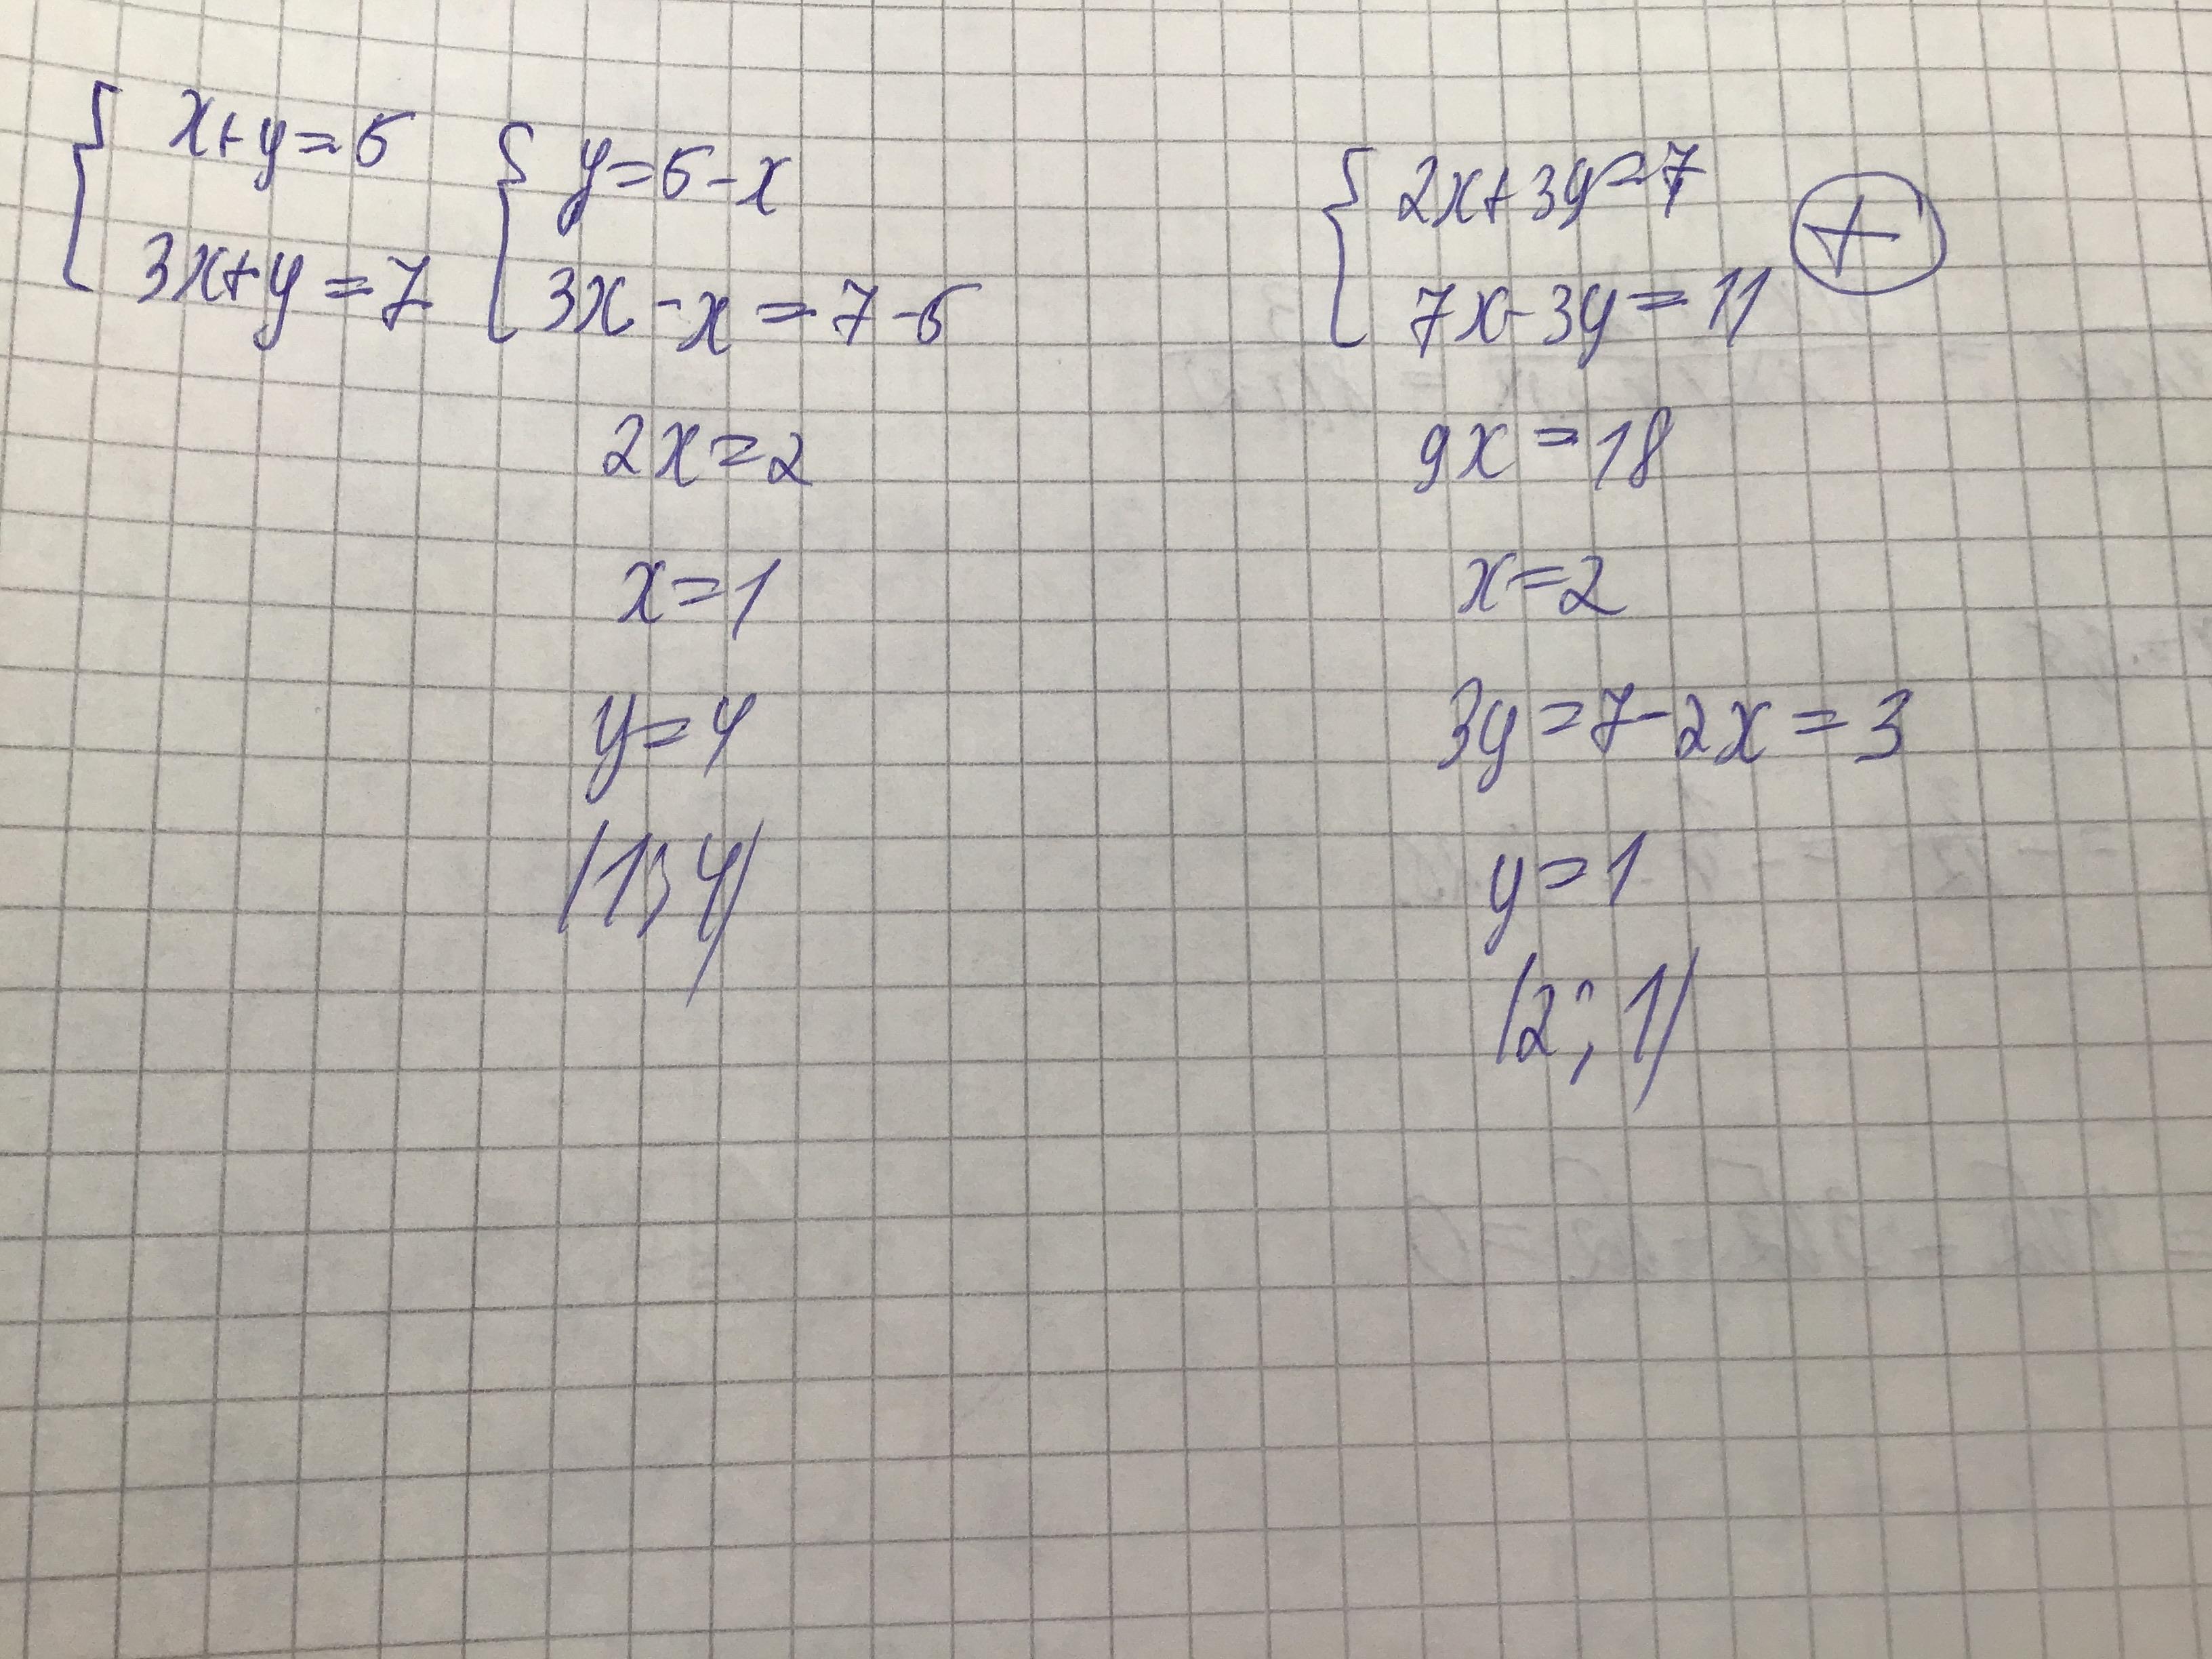 x+y=5
3x+y=7
y=5-x
3x-x=7-5
2x=2
x=1
y=4
(1;4)
2x+3y=7
7x-3y=11
+
9x=18
x=2
3y=7-2x=3
y=1
(2;1)